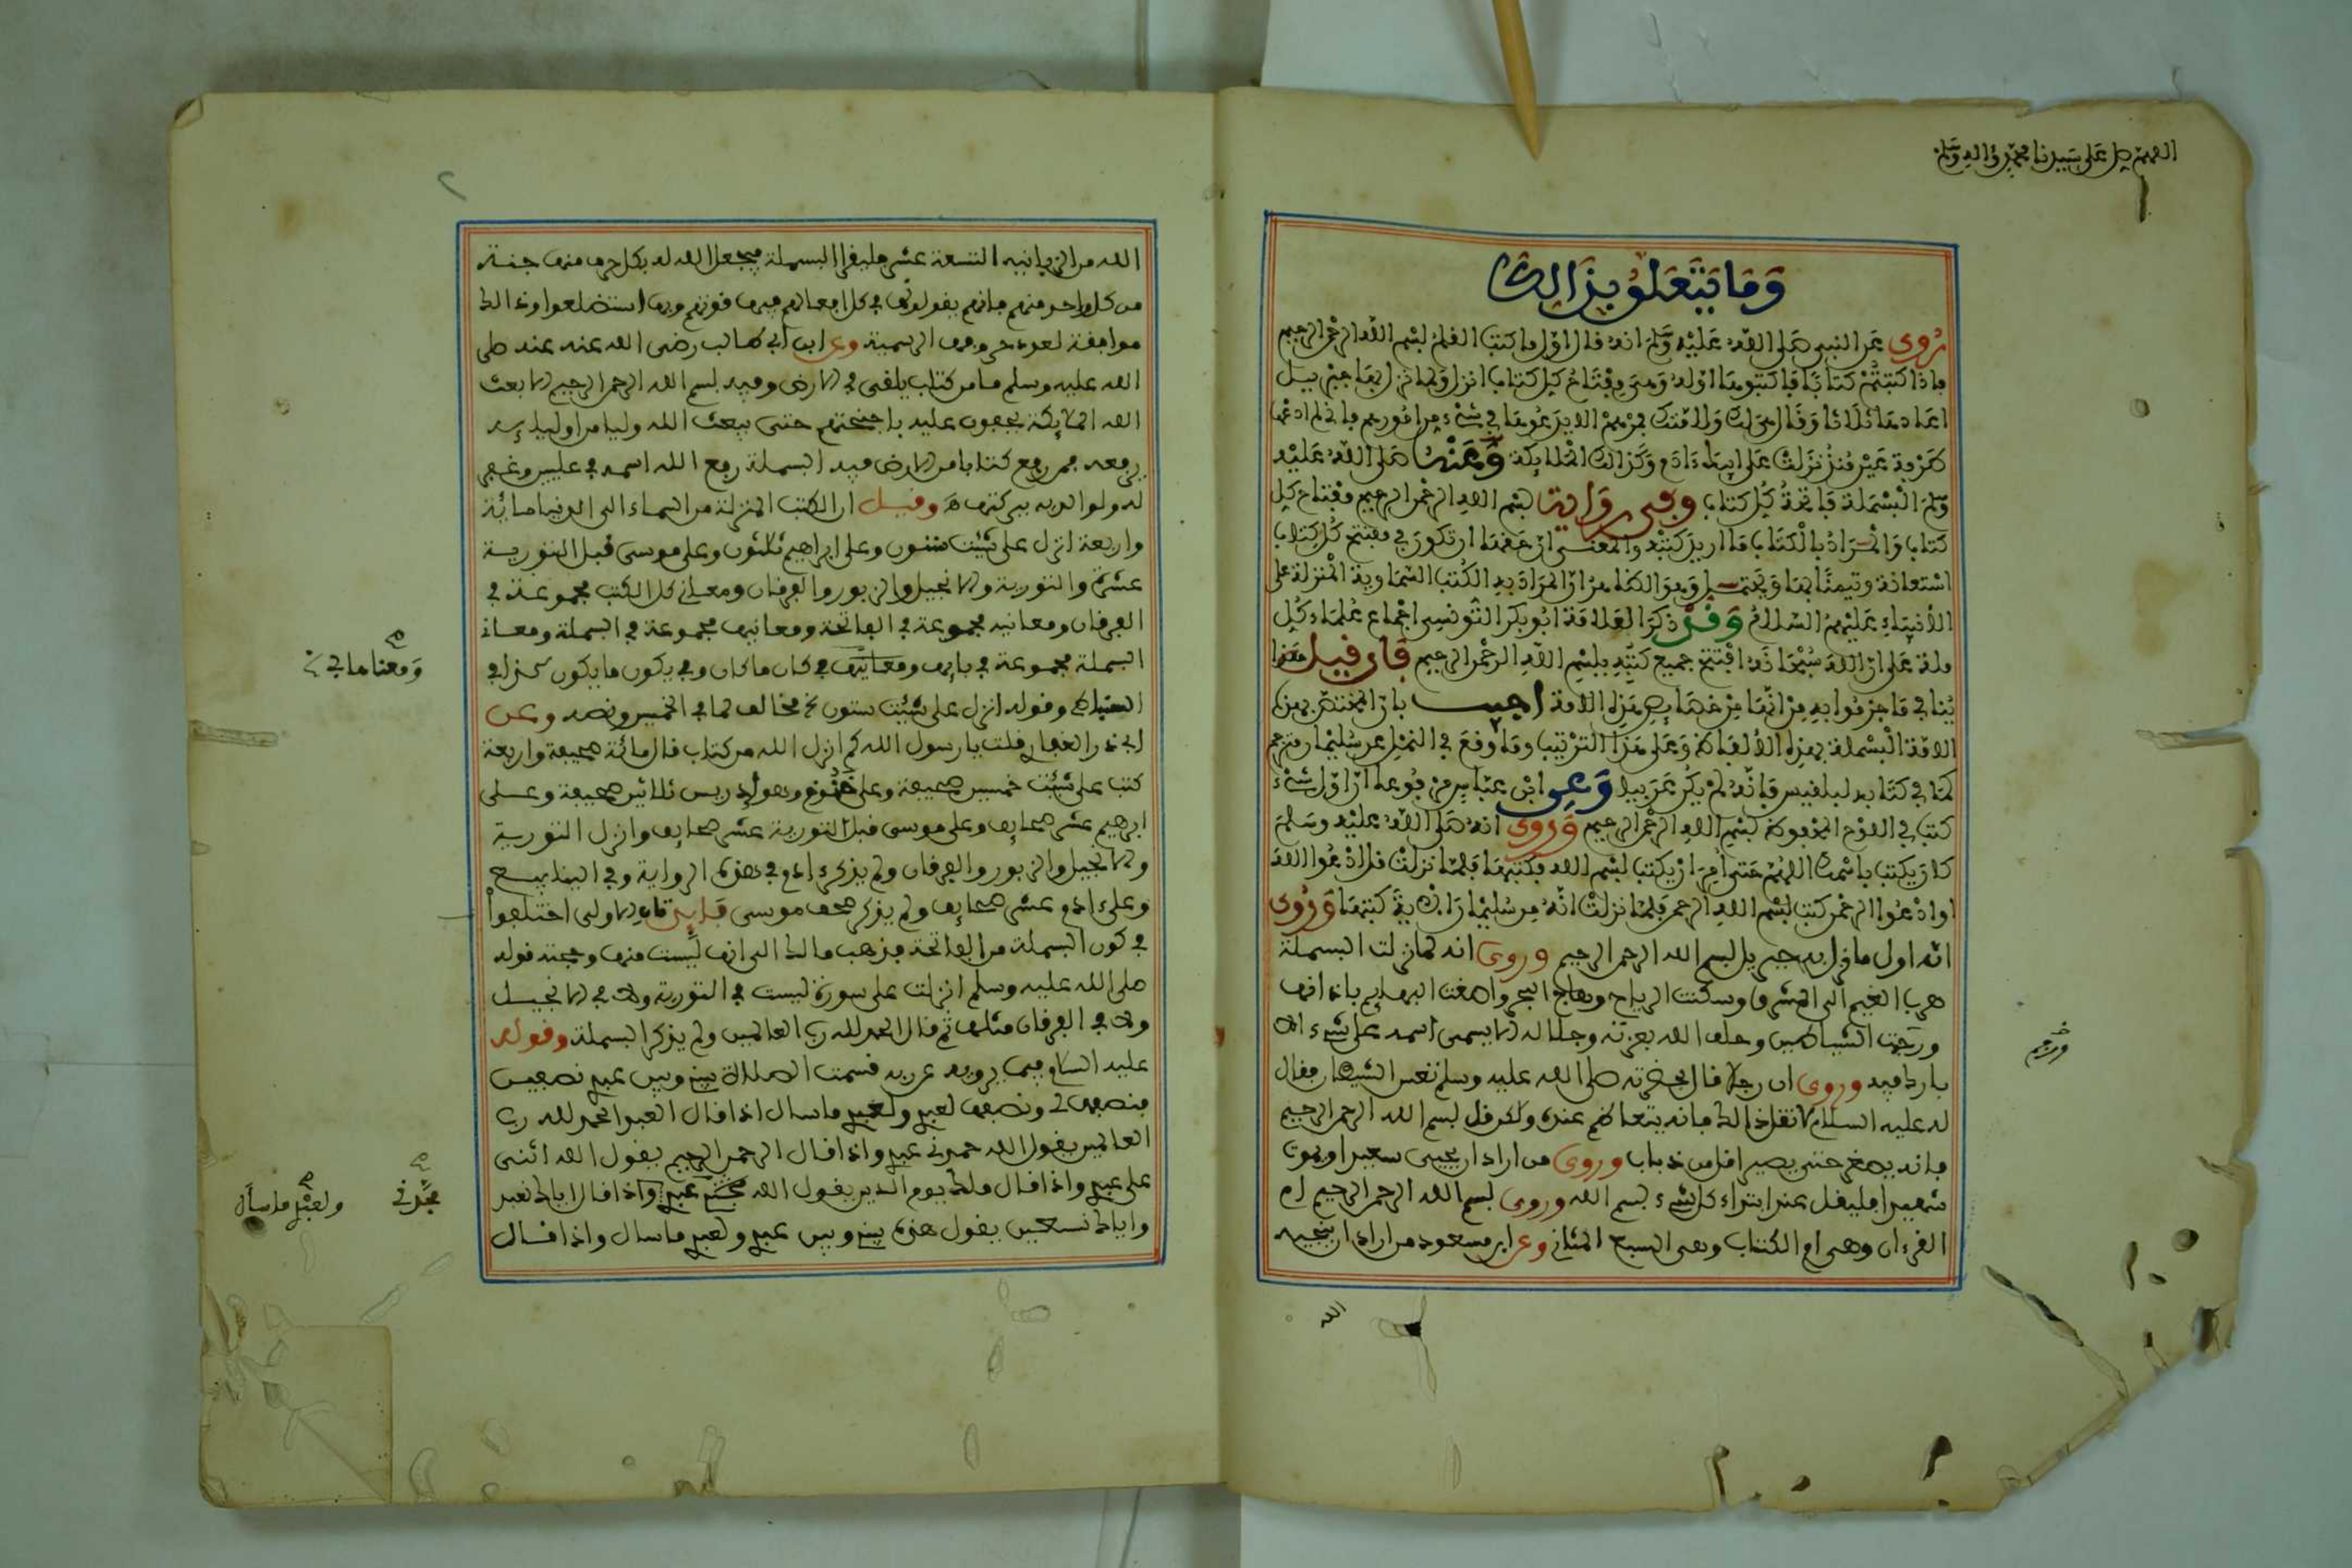 اللهم صل على سيدنا محمد واله وسلم
وما يتعلق بذالك
روى عن النبي صلى الله عليه وسلم انه قال اول ما كتب القلم بسم الله الرحمن الرحيم
فاذا كتبتم كتابا فاكتبوها اوله وهي مفتاح كل كتاب انزل ولما نزل بها جبريل
اعادها ثلاثا وقال هي لك ولامتك فمرهم الا يدعوها في شيء من امورهم فاني لم ادعها
طرفة عين منذ نزلت على ابيك ءادم وكذالك الملايكة وعنه صلى الله عليه
وسلم البسملة فاتحة كل كتاب وفي رواية بسم الله الرحمن الرحيم مفتاح كل
كتاب والمراد بالكتاب ما اريد كتبه والمعنى ان حقها ان تكون في مفتتح كل كتاب
استعانة وتيمنا بها المراد به الكتب السماوية المنزلة على
الانبياء عليهم السلام وقد ذكر العلامة ابو بكر التونسي اجماع علماء كل
ملة على ان الله سبحانه افتتح جميع كتبه ببسم الله الرحمن الرحيم فان قيل هذا
ينافي ما جزموا به من انها من خصايص هذه الامة اجيب بان المختص بهذه
الامة البسملة بهذه الالفاظ وعلى هذا الترتيب وما وقع في النمل عن سليمان
كما في كتابه لبلقيس فانه لم يكن عربيا وعن ابن عباس مرفوعا ان اول شيء
كتب في اللوح المحفوظ بسم الله الرحمن الرحيم وروى انه صلى الله عليه وسلم
كان يكتب باسمك اللهم حتى امر ان يكتب بسم الله فكتبها فلما نزلت قل ادعوا الله
او ادعوا الرحمن كتب بسم الله الرحمن فلما نزلت انه من سليمان الاية كتبها وروى
انه اول ما نزل به جبريل بسم الله الرحمن الرحيم وروى انه لما نزلت البسملة
هرب الغيم الى المشرق وسكنت الرياح وهاج البحر واصغت البهايم باذانها
ورجمت الشياطين وحلف الله بعزته وجلاله لا يسمى اسمه على شيء الا
بارك فيه وروى ان رجلا قال بحضرته صلى الله عليه وسلم تعس الشيطان فقال
له عليه السلام لا تقل ذالك فانه يتعاظم عنده ولكن قل بسم الله الرحمن الرحيم
فانه يصغر حتى يصير اقل من ذباب وروى من اراد ان يحيى سعيدا ويموت
شهيدا فليقل عند ابتداء كل شيء بسم الله وروى بسم الله الرحمن الرحيم ام
القرءان وهي ام الكتاب وهي السبع المثاني وعن ابن مسعود من اراد ان ينجيه
الله
الله من الزبانية التسعة عشر فليقرا البسملة فيجعل الله له بكل حرف منها جنة
من كل واحد منهم فانهم يقولونها في كل افعالهم فبها قوتهم وبها استضلعوا وذالك
موافقة لعدد حروفها الرسمية وعن ابن ابي طالب رضي الله عنه عنه صلى
الله عليه وسلم ما من كتاب يلقى في الارض وفيه بسم الله الرحمن الرحيم الا بعث
الله الملايكة يحفون عليه باجنحتهم حتى يبعث الله وليا من اوليايه
يرفعه فمن رفع كتابا من الارض فيه البسملة رفع الله اسمه في عليين وغفر
له ولوالديه ببركتها وقيل ان الكتب المنزلة من السماء الى الدنيا ماية
واربعة انزل على شيث ستون وعلى ابراهيم ثلثون وعلى موسى قبل التورية
عشرة والتورية والانجيل والزبور والفرقان ومعاني كل الكتب مجموعة في
الفرقان ومعانيه مجموعة في الفاتحة ومعانيها مجموعة في البسملة ومعان
البسملة مجموعة في بايها ومعانيها في كان ما كان وفي يكون ما يكون كذا في
وقوله انزل على شيث ستون مخالف لما في الخميس ونصه وعن
ابي ذر الغفاري قلت يا رسول الله كم انزل الله من كتاب قال مائة صحيفة واربعة
كتب على شيث خمسين صحيفة وعلى خنوخ وهو ادريس ثلاثين صحيفة وعلى
ابرهيم عشر صحايف وعلى موسى قبل التورية عشر صحايف وانزل التورية
والانجيل والزبور والفرقان ولم يذكر ءادم في هذه الرواية وفي الينابيع
وعلى ءادم عشر صحايف ولم يذكر صحف موسى الاولى اختلفوا
في كون البسملة من الفاتحة فذهب مالك الى انها ليست منها وحجته قوله
صلى الله عليه وسلم انزلت على سورة ليست في التورية ولا في الانجيل
ولا في الفرقان مثلها ثم قال الحمد لله رب العالمين ولم يذكر البسملة وقوله
عليه السلام فيما يرويه عن ربه قسمت الصلاة بيني وبين عبدي نصفين
فنصفها لي ونصفها لعبدي ولعبدي ما سال اذا قال العبد الحمد لله رب
العالمين يقول الله حمدني عبدي واذا قال الرحمن الرحيم يقول الله اثنى
على عبدي واذا قال ملك يوم الدين يقول الله مجدني عبدي واذا قال اياك نعبد
واياك نستعين يقول هذه بيني وبين عبدي ولعبدي ما سال واذا قال
ومعناها في
مجدني
ولعبدي ما سأل